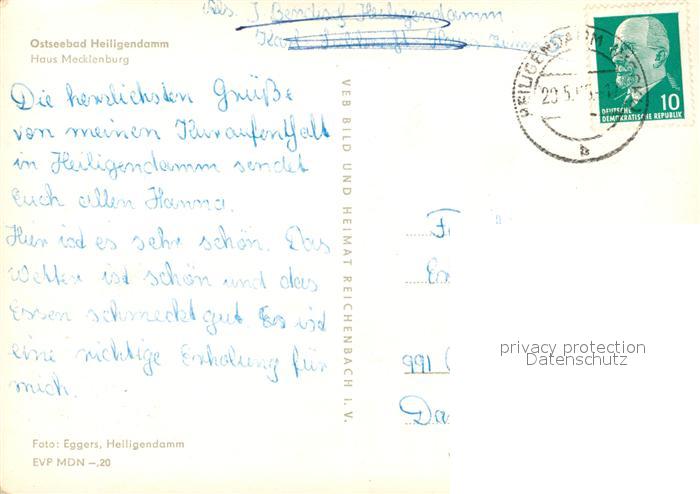 Abs. J. Bendorf Heiligendamm
Karl
Ostseebad Heiligendamm
Haus Mecklenburg
Die herzlichsten Grüße
von meinen Kuraufenthalt
in Heiligendamm sendet
Euch allen Hanna.
Hier ist es sehr schön. Das
Wetter ist schön und das
Essen schmeckt gut. Es ist
eine richtige Erholung für
mich.
Foto: Eggers, Heiligendamm
EVP MDN –,20
VEB BILD UND HEIMAT REICHENBACH I. V.
HEILIGENDAMM
b
10
DEUTSCHE
DEMOKRATISCHE REPUBLIK
991
privacy protection
Datenschutz